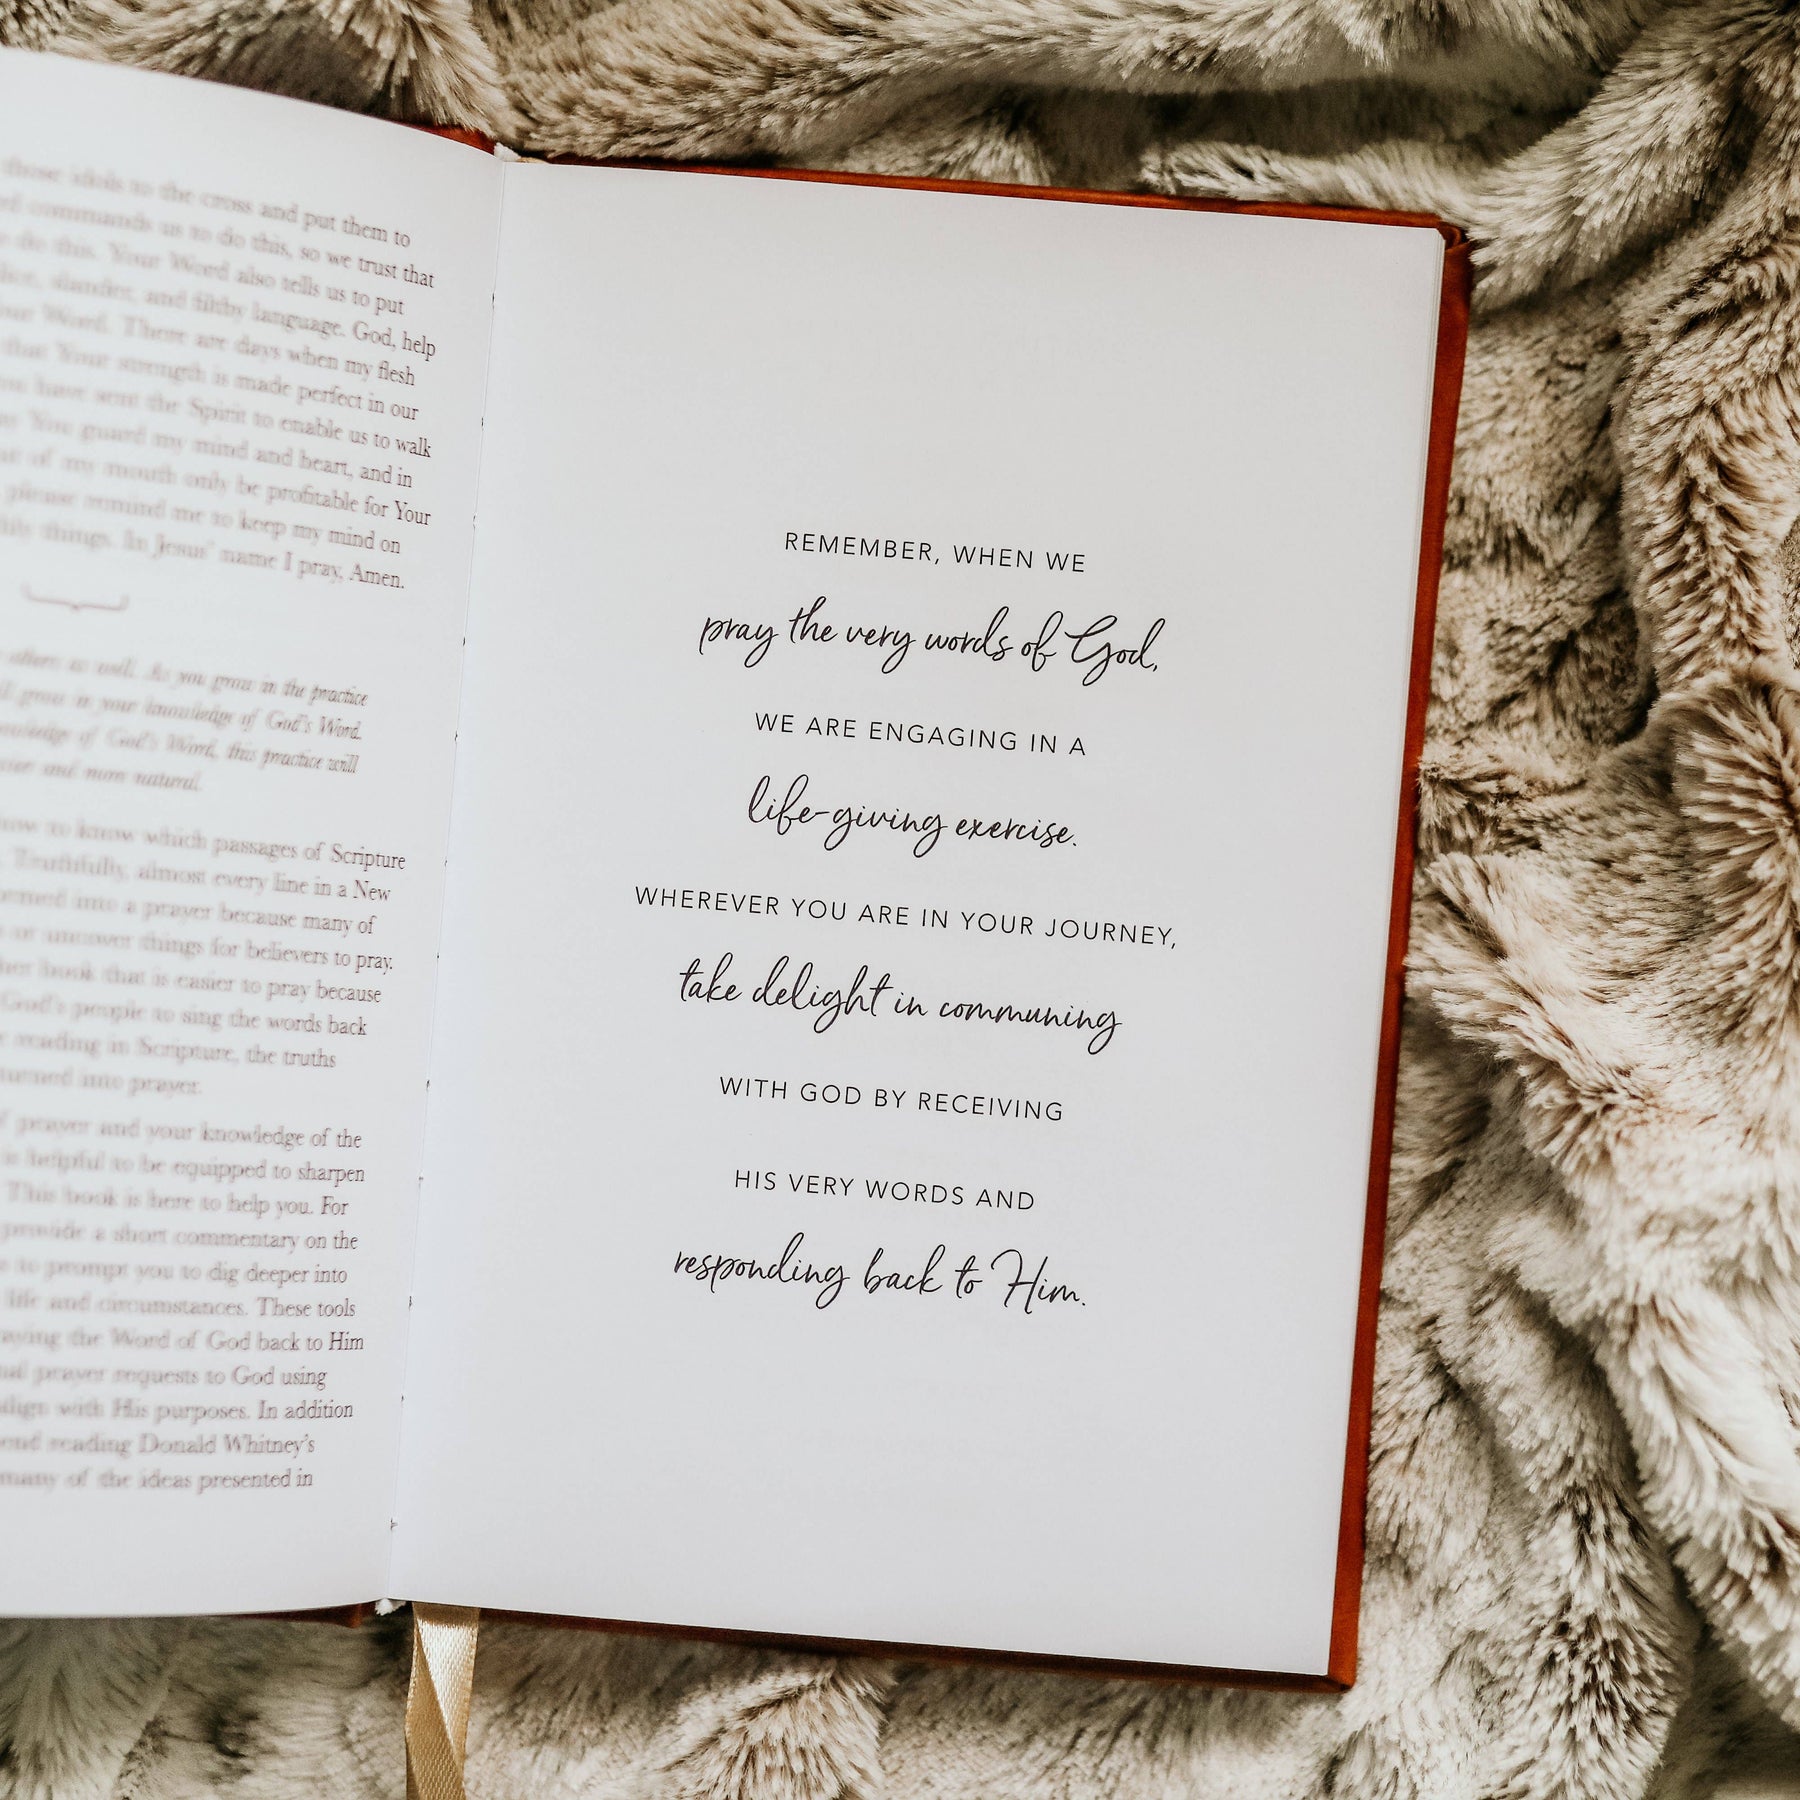 those idols to the cross and put them to
commands us to do this, so we trust that
do this. Your Word also tells us to put
slander, and filthy language. God, help
Word. There are days when my flesh
that Your strength is made perfect in our
have sent the Spirit to enable us to walk
You guard my mind and heart, and in
of my mouth only be profitable for Your
please remind me to keep my mind on
things. In Jesus' name I pray, Amen.
others as well. As you grow in the practice
grow in your knowledge of God's Word.
of God's Word, this practice will
and more natural.
to know which passages of Scripture
Truthfully, almost every line in a New
into a prayer because many of
or uncover things for believers to pray.
book that is easier to pray because
God's people to sing the words back
reading in Scripture, the truths
turned into prayer.
prayer and your knowledge of the
is helpful to be equipped to sharpen
This book is here to help you. For
provide a short commentary on the
to prompt you to dig deeper into
life and circumstances. These tools
the Word of God back to Him
prayer requests to God using
with His purposes. In addition
reading Donald Whitney's
many of the ideas presented in
REMEMBER, WHEN WE
pray the very words of God,
WE ARE ENGAGING IN A
life-giving exercise.
WHEREVER YOU ARE IN YOUR JOURNEY,
take delight in communing
WITH GOD BY RECEIVING
HIS VERY WORDS AND
responding back to Him.